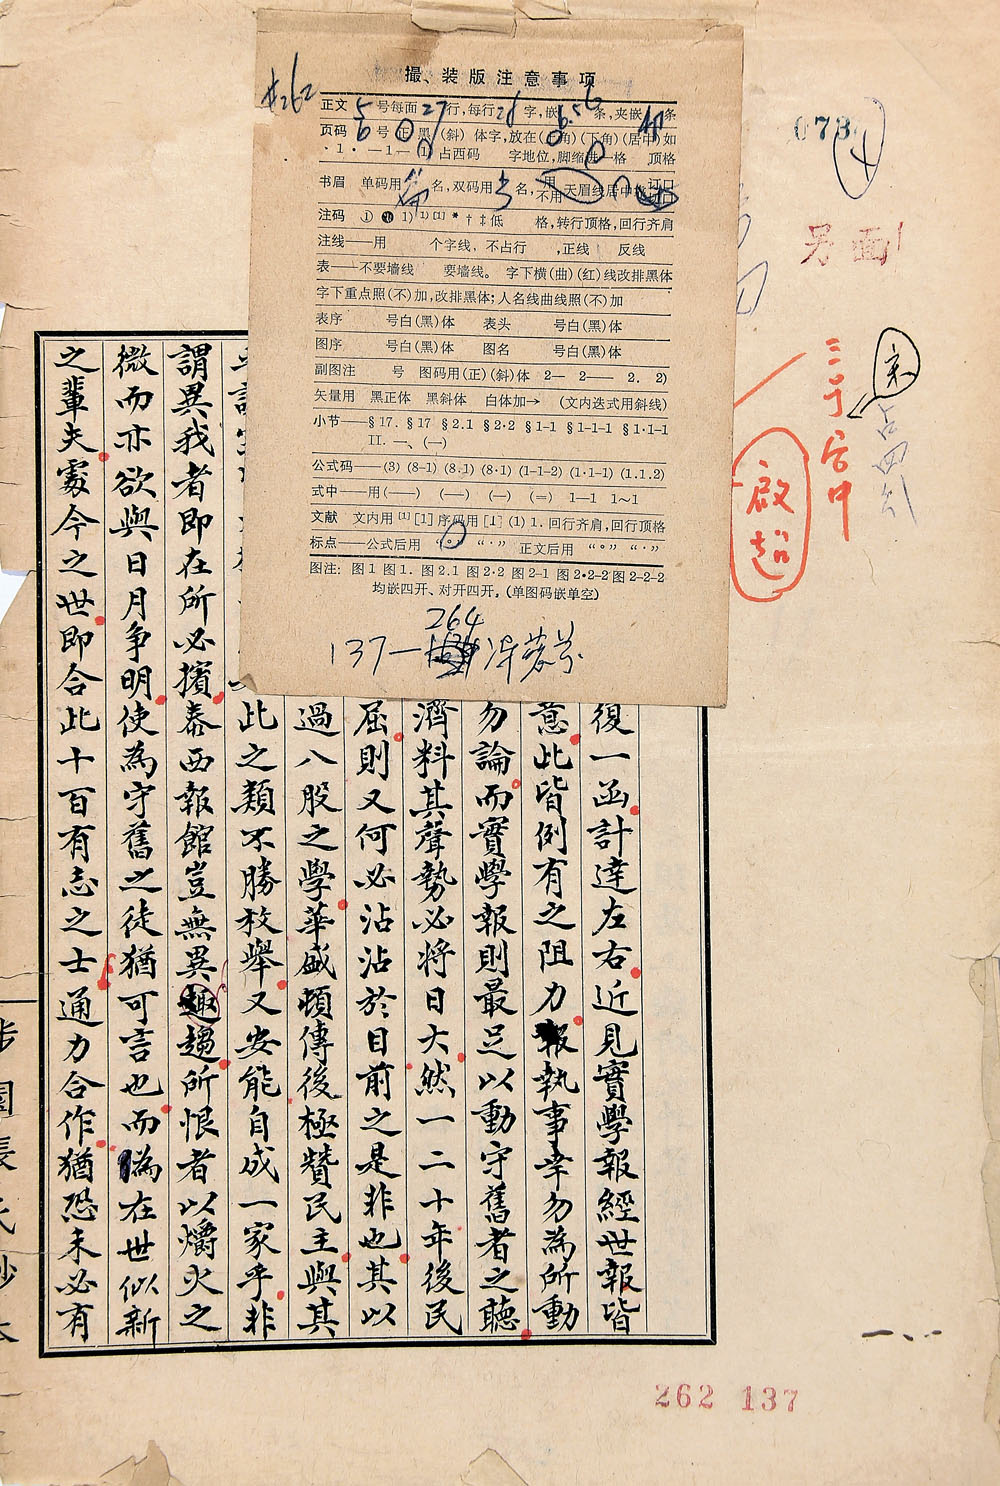 撮、装版注意事项
#262
正文 5 号每面 27 行,每行 26 字,嵌 6.5 条,夹嵌 条
页码 6 号 正 黑 (斜) 体字,放在(上角)(下角)(居中)如
·1· —1— (1) 占西码 字地位,脚缩进一格 顶格
书眉 单码用篇名,双码用书名,用 不用 天眉线居中排 订口 切口
注码 ① ❶ 1) ¹⁾ [1] * † ‡低 格,转行顶格,回行齐肩
注线——用 个字线,不占行 ,正线 反线
表——不要墙线 要墙线。 字下横(曲)(红)线改排黑体
字下重点照(不)加,改排黑体;人名线曲线照(不)加
表序 号白(黑)体 表头 号白(黑)体
图序 号白(黑)体 图名 号白(黑)体
副图注 号 图码用(正)(斜)体 2— 2—— 2. 2)
矢量用 黑正体 黑斜体 白体加→ (文内迭式用斜线)
小节——§17. §17 §2.1 §2·2 §1-1 §1-1-1 §1·1-1
II. 一、(一)
公式码——(3) (8-1) (8.1) (8·1) (1-1-2) (1·1-1) (1.1.2)
式中——用(——) (—) (—) (=) 1—1 1~1
文献 文内用 [1] [1] 序码用 [1] (1) 1. 回行齐肩,回行顶格
标点——公式后用 “∘” “·” 正文后用 “∘” “·”
图注: 图1 图1. 图2.1 图2·2 图2-1 图2•2-2 图2-2-2
均嵌四开、对开四开。(单图码嵌单空)
264
137—
073
4
另面
宋
三号居中
占四行
啟超
復一函計達左右近見實學報經世報皆
意此皆例有之阻力報執事幸勿為所動
勿論而實學報則最足以動守舊者之聽
濟料其聲勢必將日大然一二十年後民
屈則又何必沾沾於目前之是非也其以
過八股之學華盛頓傳後極贊民主與其
此之類不勝枚舉又安能自成一家乎非
謂異我者即在所必擯泰西報館豈無異趣趨所恨者以爝火之
微而亦欲與日月争明使為守舊之徒猶可言也而偽在世似新
之輩夫處今之世即合此十百有志之士通力合作猶恐未必有
一、
262 137